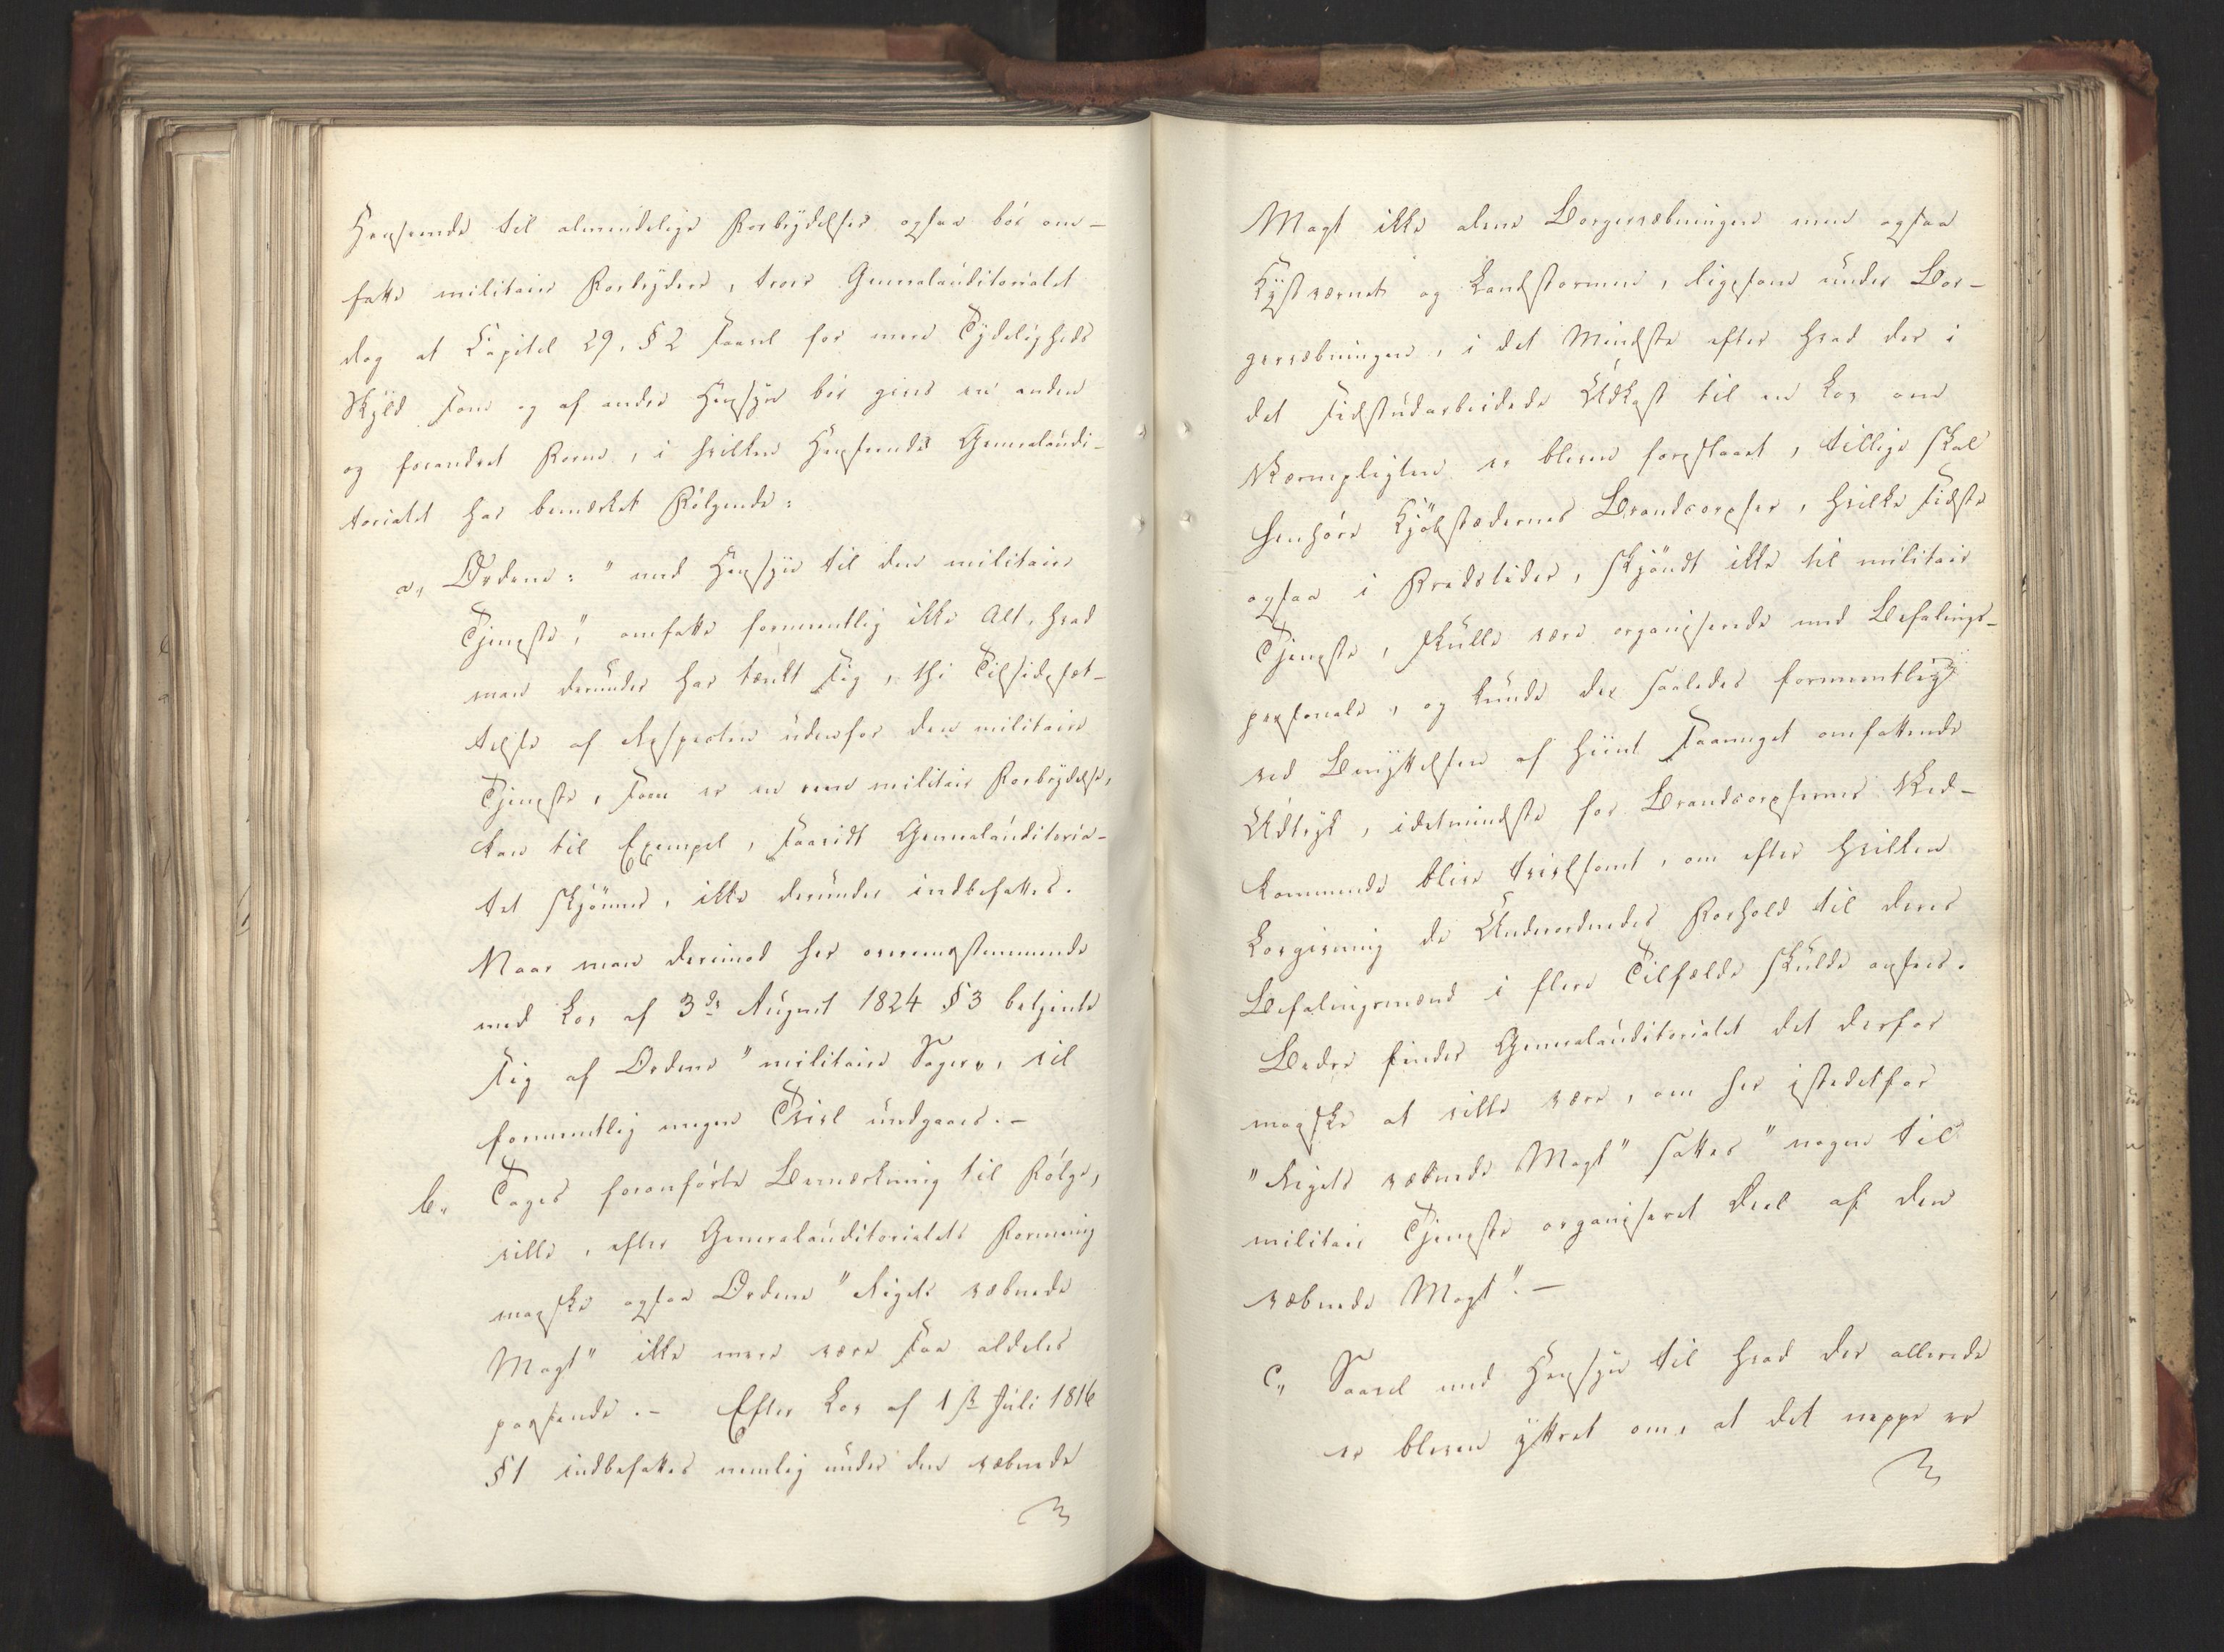 Henseende til almindelige Forbrydelser ogsaa bör om-
fatte militaire Forbrydere, troer Generalauditorialet
dog at Capitel 29, § 2 saavel for mere Tydeligheds
Skyld som og af andre Hensyn bör gives en anden
og forandret Form, i hvilken Henseende Generalaudi-
torialet har bemærket Fölgende:
a„ Ordene: "med Hensyn til den militaire
Tjeneste", omfatte formeentlig ikke Alt, hvad
man derunder har tænkt sig, thi Tilsidesæt-
telse af Respecten udenfor den militaire
Tjeneste, som er en reen militair Forbrydelse,
kan til Exempel, saavidt Generalauditoria-
tet skjönner, ikke derunder indbefattes.
Naar man derimod her overeensstemmende
med Lov af 3de August 1824 § 3 betjente
sig af Ordene "militaire Sager„, vil
formeentlig megen Tvivl undgaaes. -
b„ Tages foranförte Bemærkning til Fölge,
vilde, efter Generalauditorialets Formening
maaskee ogsaa Ordene "Rigets væbnede
Magt" ikke mere være saa aldeles
passende. - Efter Lov af 1ste Juli 1816
§ 1 indbefattes nemlig under den væbnede
Magt ikke alene Borgervæbningen men ogsaa
Kystværnet og Landstormen, ligesom under Bor-
gervæbningen, i det Mindste efter hvad der i
det sidstudarbeidede Udkast til en Lov om
Værnepligten er bleven foreslaaet, tillige skal
henhöre Kjöbstædernes Brandcorpser, hvilke sidste
ogsaa i Fredstider, skjöndt ikke til militair
Tjeneste, skulle være organiserede med Befalings-
personale, og kunde det saaledes formeentligt
ved Benyttelsen af hiint saameget omfattende
Udtryk, idetmindste for Brandcorpsernes Ved-
kommende blive tvivlsomt, om efter hvilken
Lovgivning de Underordnedes Forhold til deres
Befalingsmænd i flere Tilfælde skulde ansees.
Bedre finder Generalauditorialet det derfor
maaskee at ville være, om her istedetfor
"Rigets væbnede Magt" sættes "nogen til
militair Tjeneste organiseret Deel af den
væbnede Magt". -
c„ Saavel med Hensyn til hvad der allerede
er bleven yttret om, at det neppe er